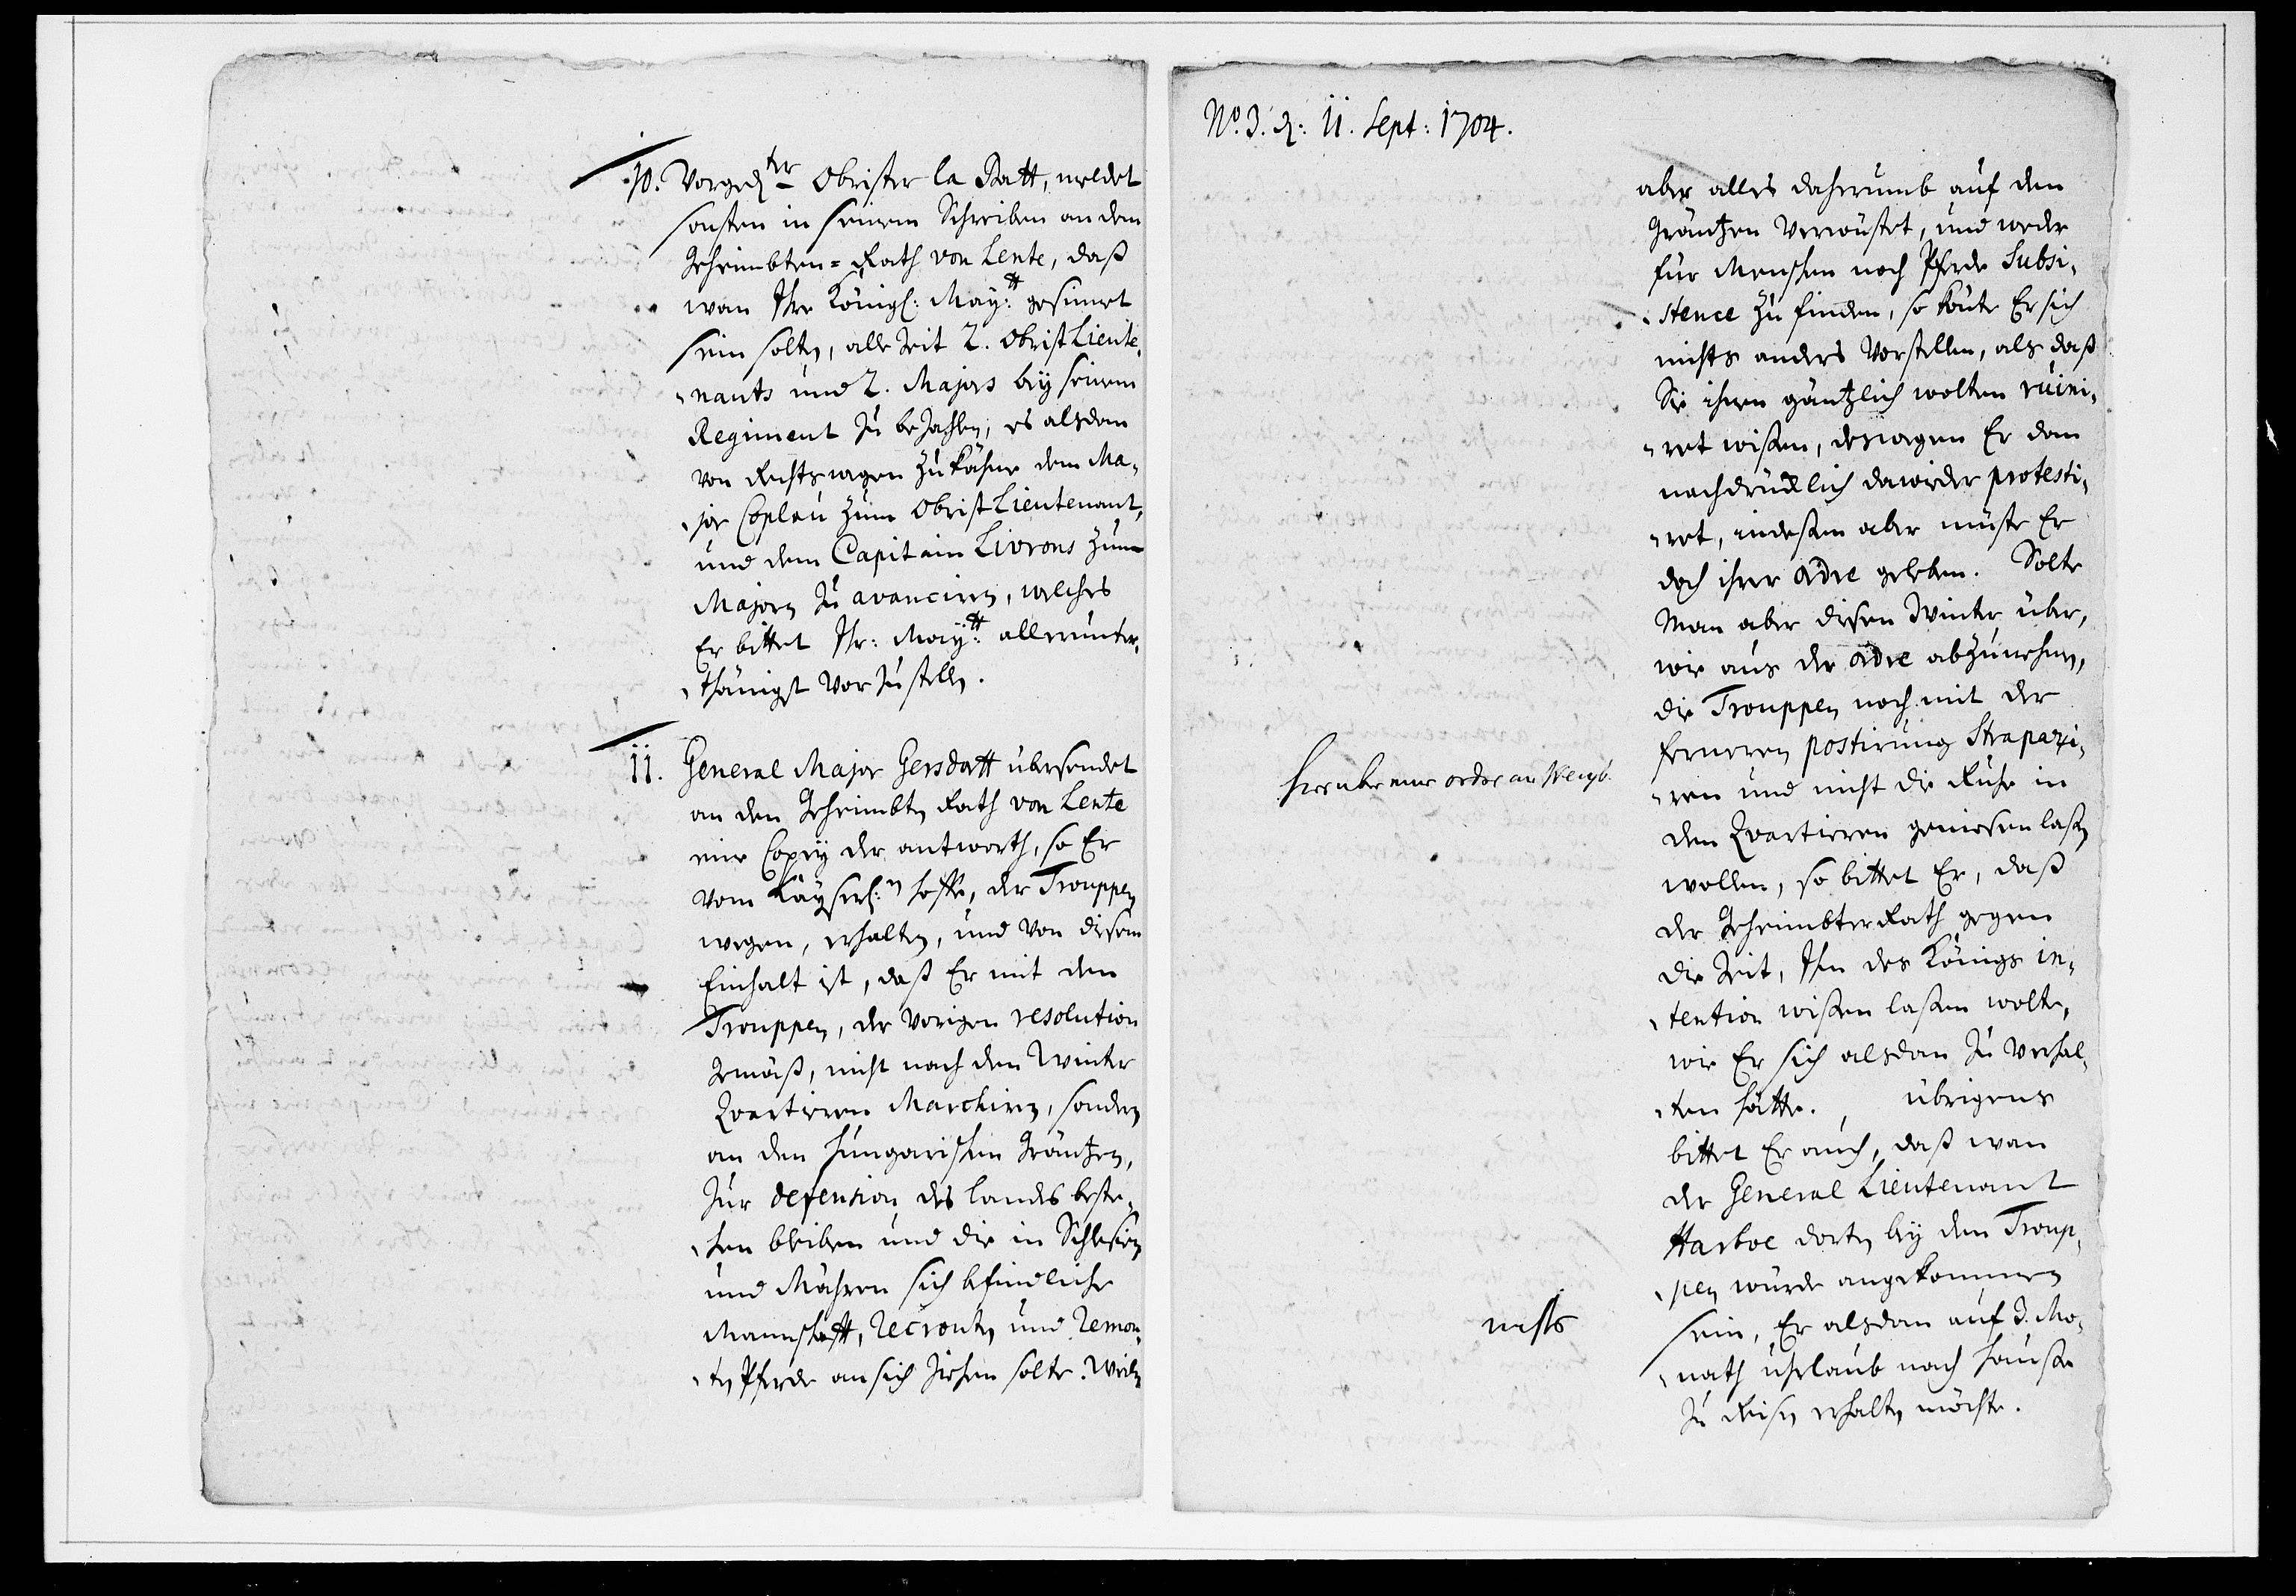 10. Vorged.ter Obrister la Batt, meldet
sonsten in seinem Schreiben an dem
Geheimbten-Rath von Lente, daß
wan Ihre Königl: May:tt gesinnet
sein solten, alle Zeit 2. Obrist Lieute,
nants und 2. Majors bey seinem
Regiment zu bezahlen, es alsdan
von Rechtswegen zukähme dem Ma,
jor Coplau zum Obrist Lieutenant,
und dem Capitain Livrons zum
Majorn zu avanciren, welches
Er bittet Ihr: May:tt allerunter,
thänigst vorzustellen.
11. General Major Gersdorff übersendet
an den Geheimbten Rath von Lente
eine Copey der antworth, so Er
vom Käyserl:n hoffe, der Trouppen
wegen, erhalten, und von diesem
Einhalt ist, daß Er mit den
Trouppen, der vorigen resolution
Gemäß, nicht nach den Winter
Qvartieren Marchiren, sondern
an den hungarischen Gräntzen,
zur defension des landes beste,
hen bleiben und die in Schlesien
und Mähren sich befindliche
Mannschafft, recrouten und remon,
ten Pferde an sich ziehen solte. Weilen
No. 3. d: 11. Sept: 1704.
aber alles daherumb auf den
Gräntzen verwüstet, und weder
für Menschen noch Pferde Subsi,
stence zu finden, so könte Er sich
nichts anders vorstellen, als daß
Sie ihnen gäntzlich wolten ruini,
ret wißen, deswegen Er dan
nachdrücklich dawieder protesti,
ret, indeßen aber müste Er
doch ihrer ordre geleben. Solte
Man aber diesen Winter über,
wie aus der ordre abzunehmen,
die Trouppen noch mit der
ferneren postirung Strapazi,
ren und nicht die Ruhe in
den Qvartieren geniesen laßen
wollen, so bittet Er, daß
der Geheimbter Rath gegen
die Zeit, Ihm des Königs in,
tention wißen laßen wolte,
wie Er sich alsdan zu verhal,
ten hätte. übrigens
bittet Er auch, daß wan
der General Lieutenant
Harboe dorten bey den Troup,
pen würde angekommen
sein, Er alsdan auf 3. Mo,
nath uhrlaub nach hauße
zu Reisen erhalten möchte.
hierüber eine ordre an
nichts